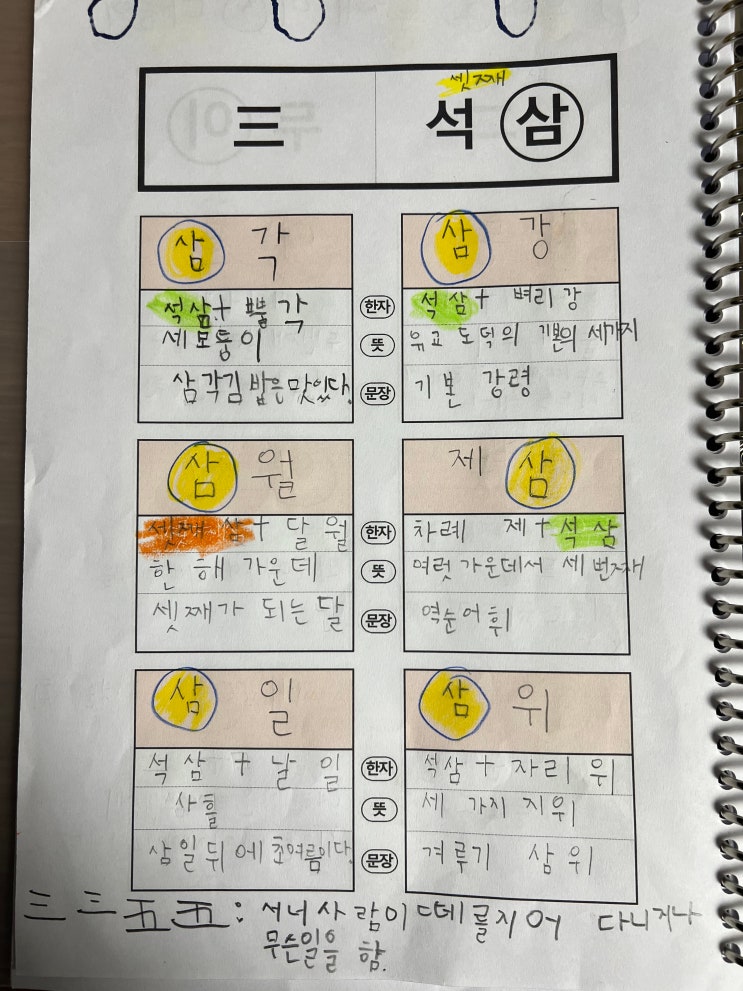 셋째
三 석 삼
삼 각
석 삼 + 뿔 각
세모퉁이
삼각김밥은 맛있다.
삼 강
석 삼 + 벼리 강
유교 도덕의 기본의 세가지
기본 강령
한자
뜻
문장
삼 월
셋째 삼 + 달 월
한 해 가운데
셋째가 되는 달
제 삼
차례 제 + 석 삼
여럿 가운데서 세 번째
역순어휘
한자
뜻
문장
삼 일
석 삼 + 날 일
사흘
삼일 뒤에 초여름이다.
삼 위
석삼 + 자리 위
세 가지 지위
겨루기 삼위
한자
뜻
문장
三三五五: 서너사람이 떼를지어 다니거나
무슨일을 함.